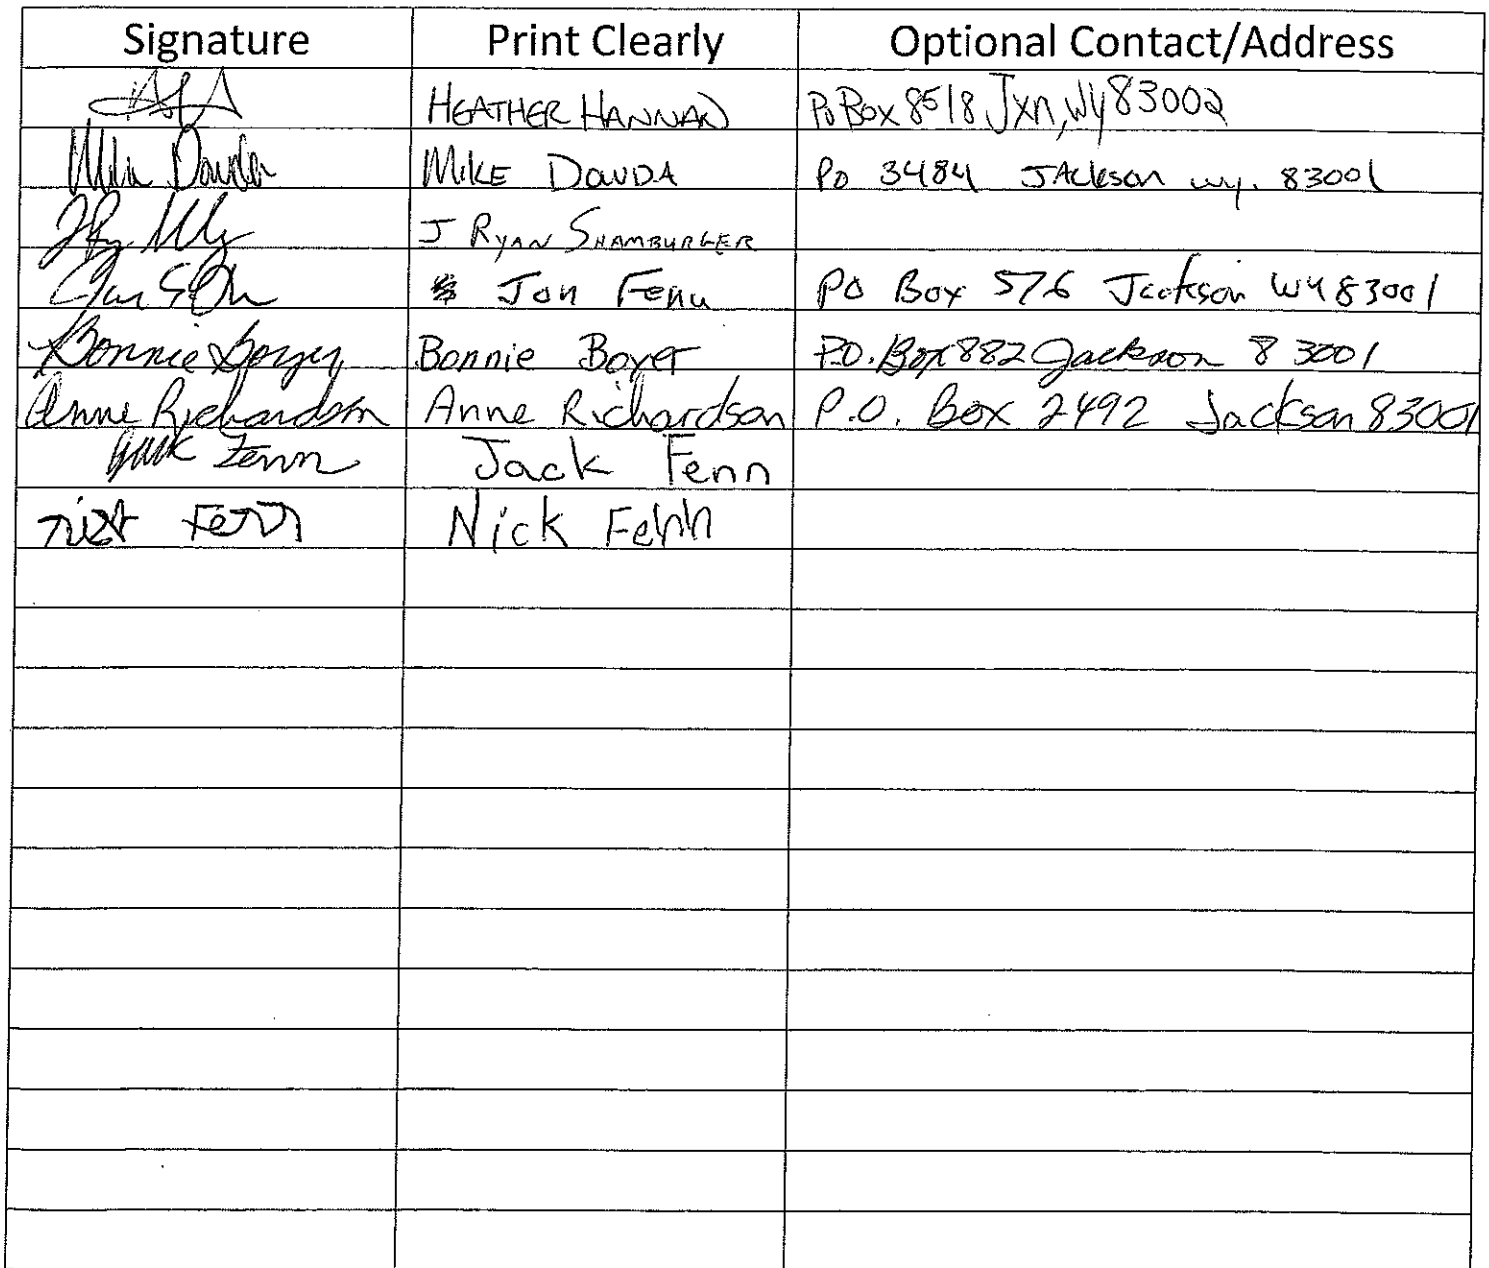 Signature Print Clearly Optional Contact/Address
HEATHER HANNAN Po Box 8518 Jxn, Wy 83002
Mike Douda MIKE DOUDA Po 3484 JAckson wy. 83001
J RYAN SHAMBURGER
Jon Fenn PO Box 576 Jackson WY 83001
Bonnie Boyer Bonnie Boyer P.O. Box 882 Jackson 83001
Anne Richardson Anne Richardson P.O. Box 2492 Jackson 83001
Jack Fenn Jack Fenn
Nick Fenn Nick Fenn